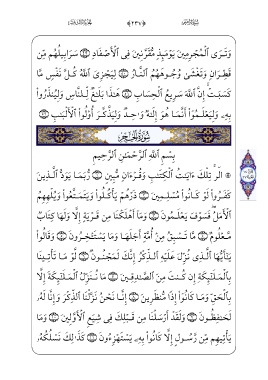 وَتَرَى ٱلْمُجْرِمِينَ يَوْمَئِذٍ مُّقَرَّنِينَ فِى ٱلْأَصْفَادِ ٤٩ سَرَابِيلُهُم مِّن
قَطِرَانٍ وَتَغْشَىٰ وُجُوهَهُمُ ٱلنَّارُ ٥٠ لِيَجْزِىَ ٱللَّهُ كُلَّ نَفْسٍ مَّا
كَسَبَتْ إِنَّ ٱللَّهَ سَرِيعُ ٱلْحِسَابِ ٥١ هَٰذَا بَلَٰغٌ لِّلنَّاسِ وَلِيُنذَرُوا۟
بِهِۦ وَلِيَعْلَمُوٓا۟ أَنَّمَا هُوَ إِلَٰهٌ وَٰحِدٌ وَلِيَذَّكَّرَ أُو۟لُوا۟ ٱلْأَلْبَٰبِ ٥٢
سُورَةُ الحِجْرِ
بِسْمِ ٱللَّهِ ٱلرَّحْمَٰنِ ٱلرَّحِيمِ
الٓر تِلْكَ ءَايَٰتُ ٱلْكِتَٰبِ وَقُرْءَانٍ مُّبِينٍ ١ رُّبَمَا يَوَدُّ ٱلَّذِينَ
كَفَرُوا۟ لَوْ كَانُوا۟ مُسْلِمِينَ ٢ ذَرْهُمْ يَأْكُلُوا۟ وَيَتَمَتَّعُوا۟ وَيُلْهِهِمُ
ٱلْأَمَلُ فَسَوْفَ يَعْلَمُونَ ٣ وَمَآ أَهْلَكْنَا مِن قَرْيَةٍ إِلَّا وَلَهَا كِتَابٌ
مَّعْلُومٌ ٤ مَّا تَسْبِقُ مِنْ أُمَّةٍ أَجَلَهَا وَمَا يَسْتَـْٔخِرُونَ ٥ وَقَالُوا۟
يَٰٓأَيُّهَا ٱلَّذِى نُزِّلَ عَلَيْهِ ٱلذِّكْرُ إِنَّكَ لَمَجْنُونٌ ٦ لَّوْ مَا تَأْتِينَا
بِٱلْمَلَٰٓئِكَةِ إِن كُنتَ مِنَ ٱلصَّٰدِقِينَ ٧ مَا نُنَزِّلُ ٱلْمَلَٰٓئِكَةَ إِلَّا
بِٱلْحَقِّ وَمَا كَانُوٓا۟ إِذًا مُّنظَرِينَ ٨ إِنَّا نَحْنُ نَزَّلْنَا ٱلذِّكْرَ وَإِنَّا لَهُۥ
لَحَٰفِظُونَ ٩ وَلَقَدْ أَرْسَلْنَا مِن قَبْلِكَ فِى شِيَعِ ٱلْأَوَّلِينَ ١٠ وَمَا
يَأْتِيهِم مِّن رَّسُولٍ إِلَّا كَانُوا۟ بِهِۦ يَسْتَهْزِءُونَ ١١ كَذَٰلِكَ نَسْلُكُهُۥ